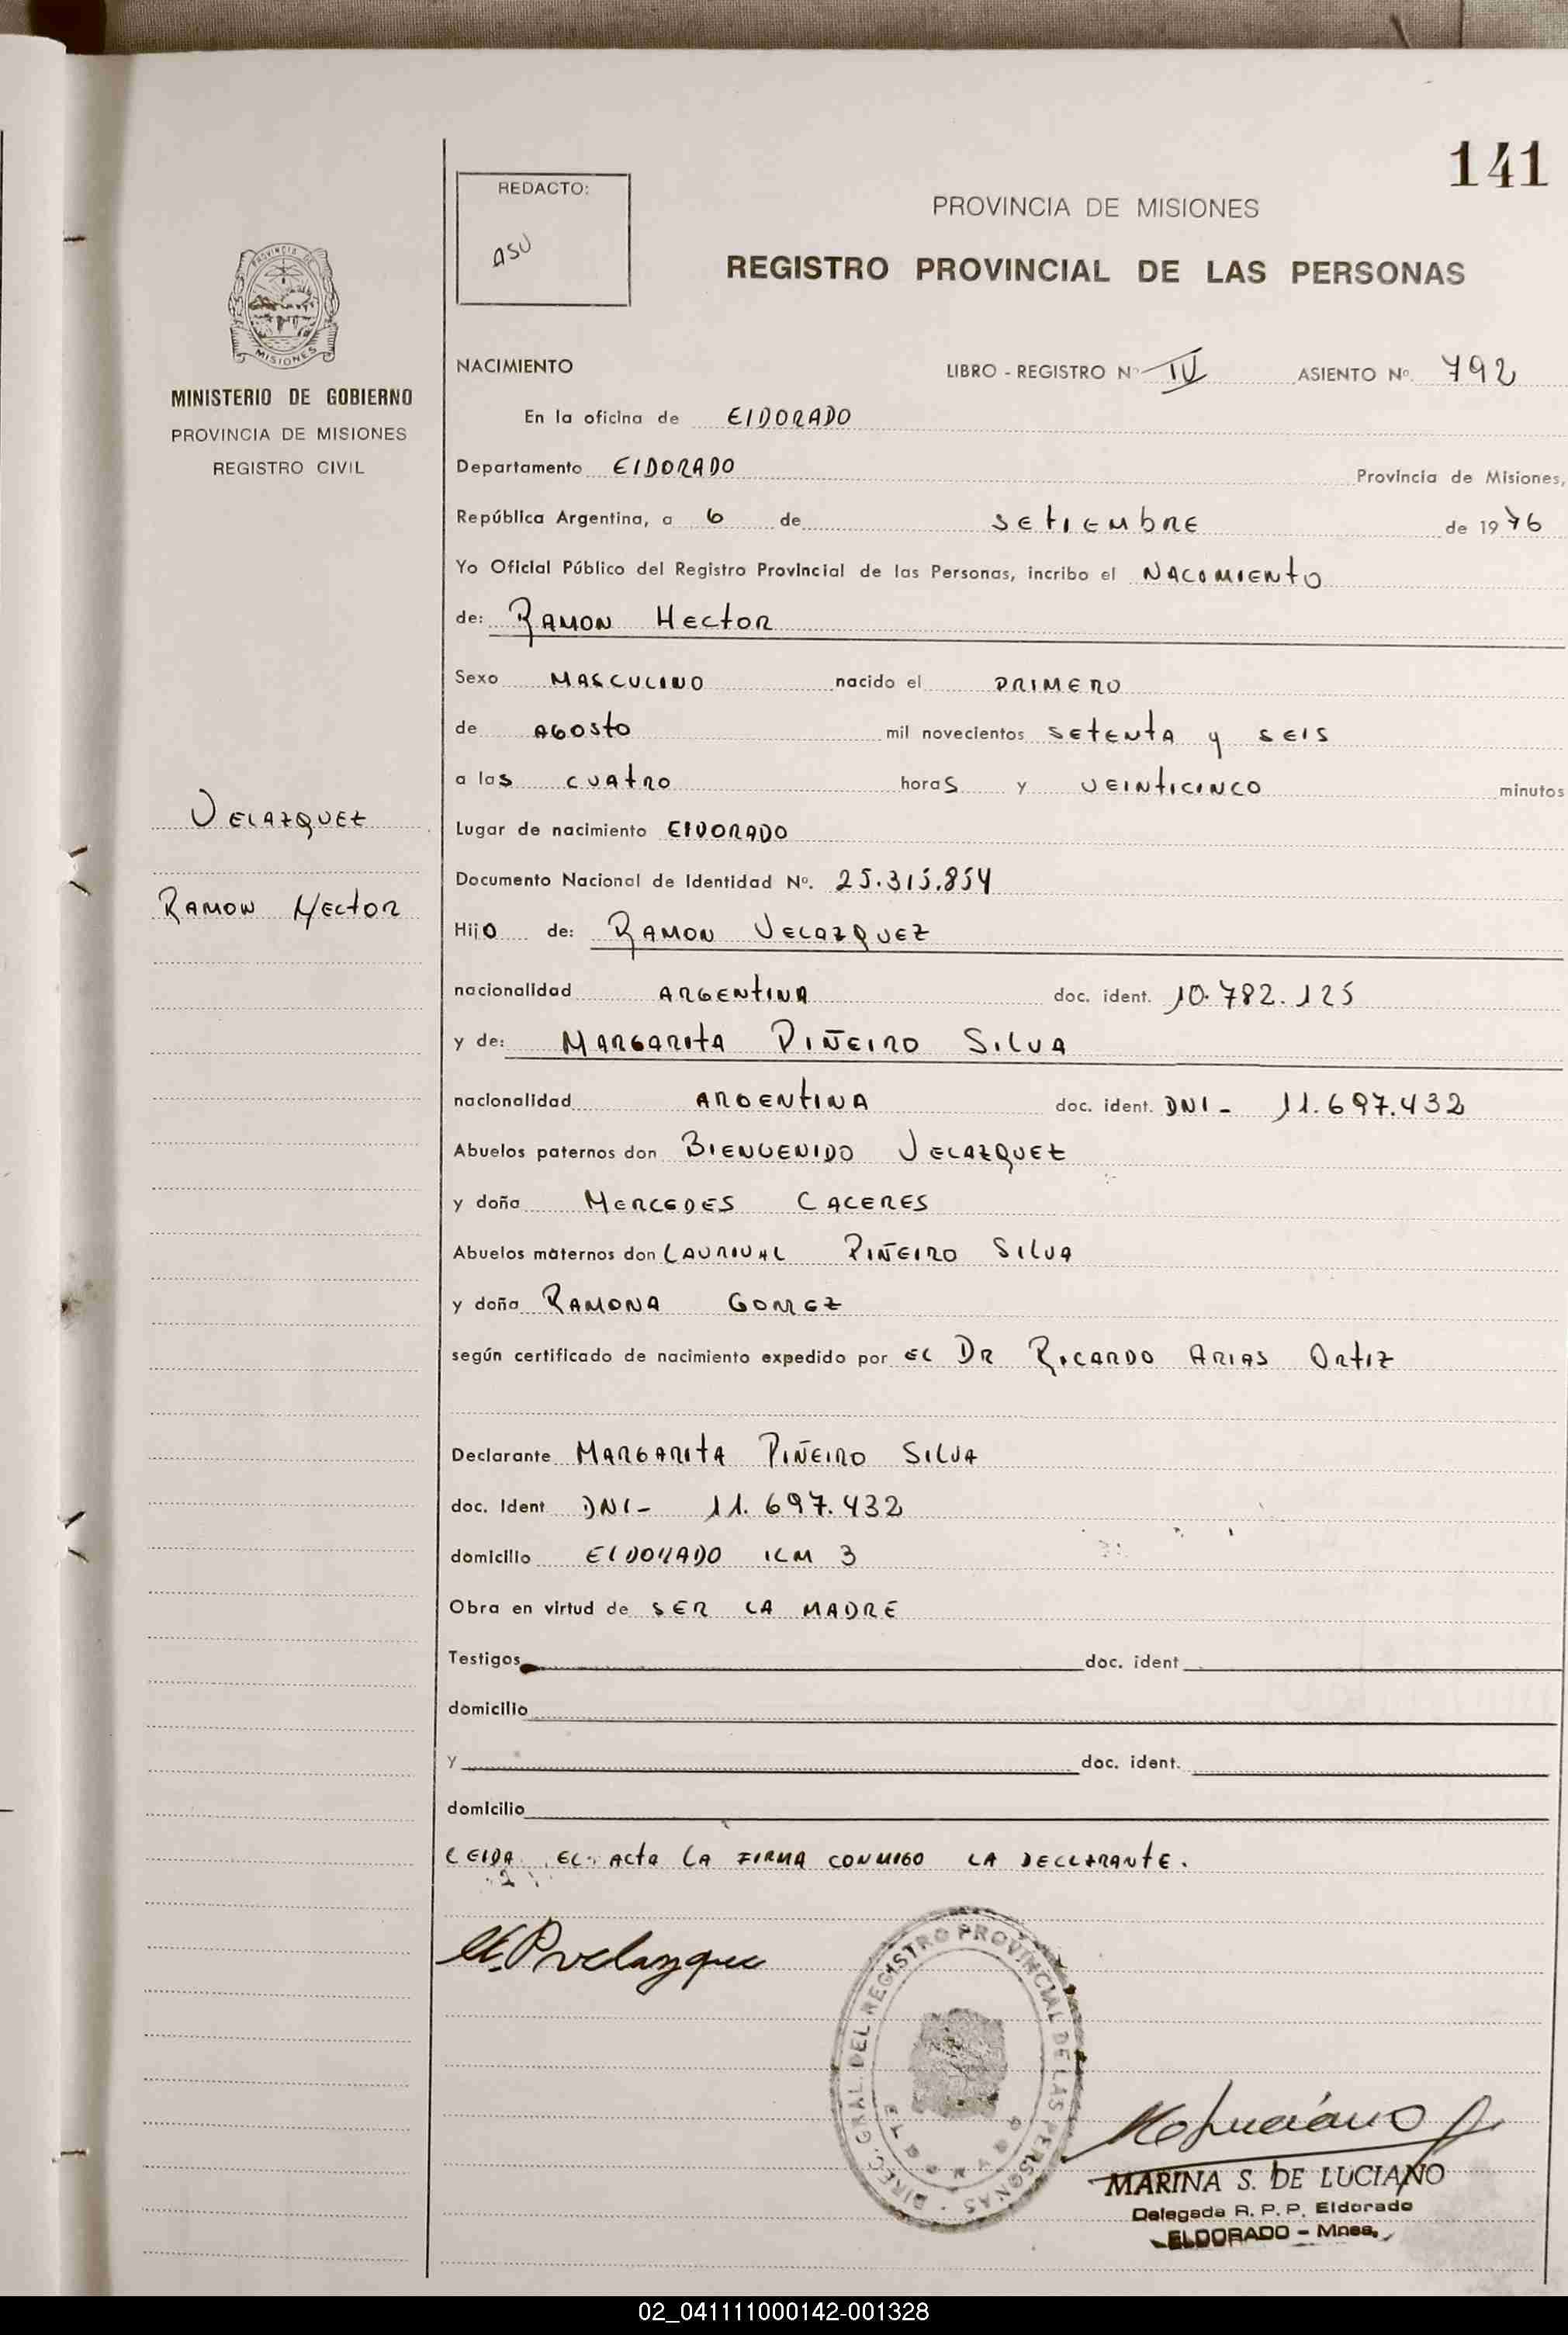 141
REDACTO:
ASU
PROVINCIA DE MISIONES
REGISTRO PROVINCIAL DE LAS PERSONAS
PROVINCIA DE
MISIONES
MINISTERIO DE GOBIERNO
PROVINCIA DE MISIONES
REGISTRO CIVIL
NACIMIENTO LIBRO - REGISTRO Nº IV ASIENTO Nº 792
En la oficina de ElDORADO
Departamento ElDORADO Provincia de Misiones,
República Argentina, a 6 de SEtIEMbRE de 1976
Yo Oficial Público del Registro Provincial de las Personas, incribo el NACIMIENTO
de: RAMON HECTOR
Sexo MASCULINO nacido el PRIMERO
de AGOSTO mil novecientos SETENTA y SEIS
a las CUATRO horas y VEINTICINCO minutos
Lugar de nacimiento ElDORADO
Documento Nacional de Identidad Nº. 25.315.854
Hijo de: RAMON VELAZQUEZ
nacionalidad ARGENTINA doc. ident. 10.782.125
y de: MARGARITA PIÑEIRO SILVA
nacionalidad ARGENTINA doc. ident. DNI- 11.697.432
Abuelos paternos don BIENVENIDO VELAZQUEZ
y doña MERCEDES CACERES
Abuelos maternos don LAURIVAL PIÑEIRO SILVA
y doña RAMONA GOMEZ
según certificado de nacimiento expedido por EL DR RICARDO ARIAS ORTIZ
Declarante MARGARITA PIÑEIRO SILVA
doc. Ident DNI- 11.697.432
domicilio ElDORADO KM 3
Obra en virtud de SER LA MADRE
Testigos doc. ident
domicilio
y doc. ident.
domicilio
LEIDA EL ACTA LA FIRMA CONMIGO LA DECLARANTE.
VELAZQUEZ
RAMON HECTOR
M. P velazque
DIREC. GRAL. DEL REGISTRO PROVINCIAL DE LAS PERSONAS
ELDORADO
MARINA S. DE LUCIANO
Delegada R. P. P. Eldorado
ELDORADO - Mnes.
02_041111000142-001328